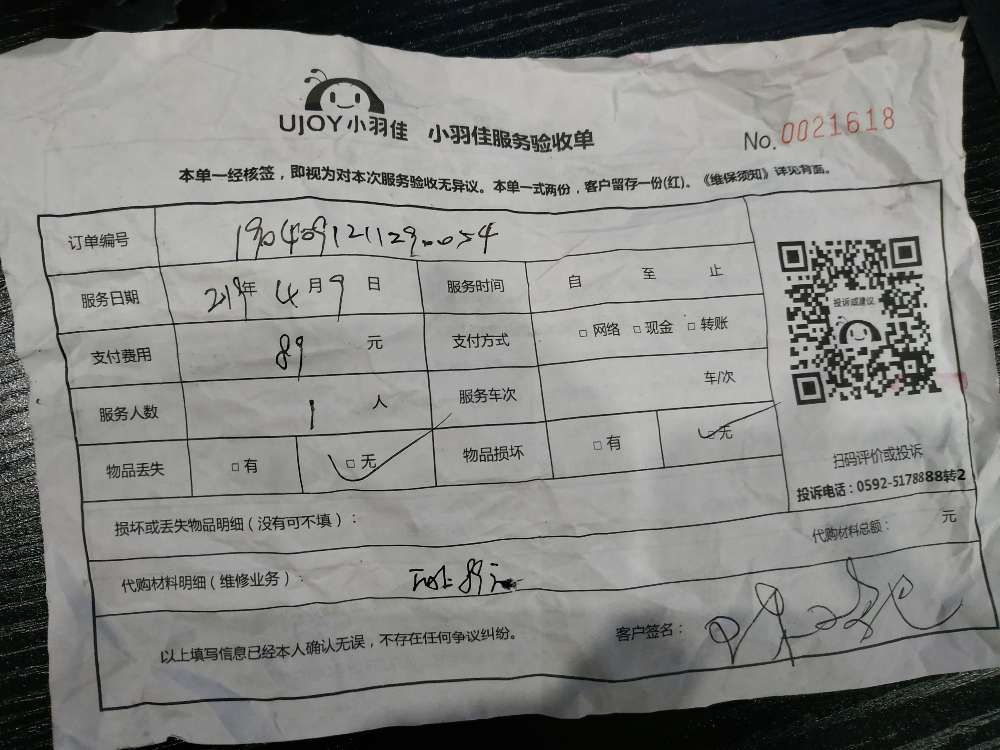 UJOY小羽佳 小羽佳服务验收单 No.0021618
本单一经核签，即视为对本次服务验收无异议。本单一式两份，客户留存一份(红)。《维保须知》详见背面。
订单编号
服务日期 219年 4月9日 服务时间 自 至 止
支付费用 89 元 支付方式 □网络 □现金 □转账
服务人数 1 人 服务车次 车/次
物品丢失 □有 □无 物品损坏 □有 □无
投诉或建议
扫码评价或投诉
投诉电话：0592-5178888转2
损坏或丢失物品明细（没有可不填）：
代购材料总额： 元
代购材料明细（维修业务）： 89元
以上填写信息已经本人确认无误，不存在任何争议纠纷。 客户签名：